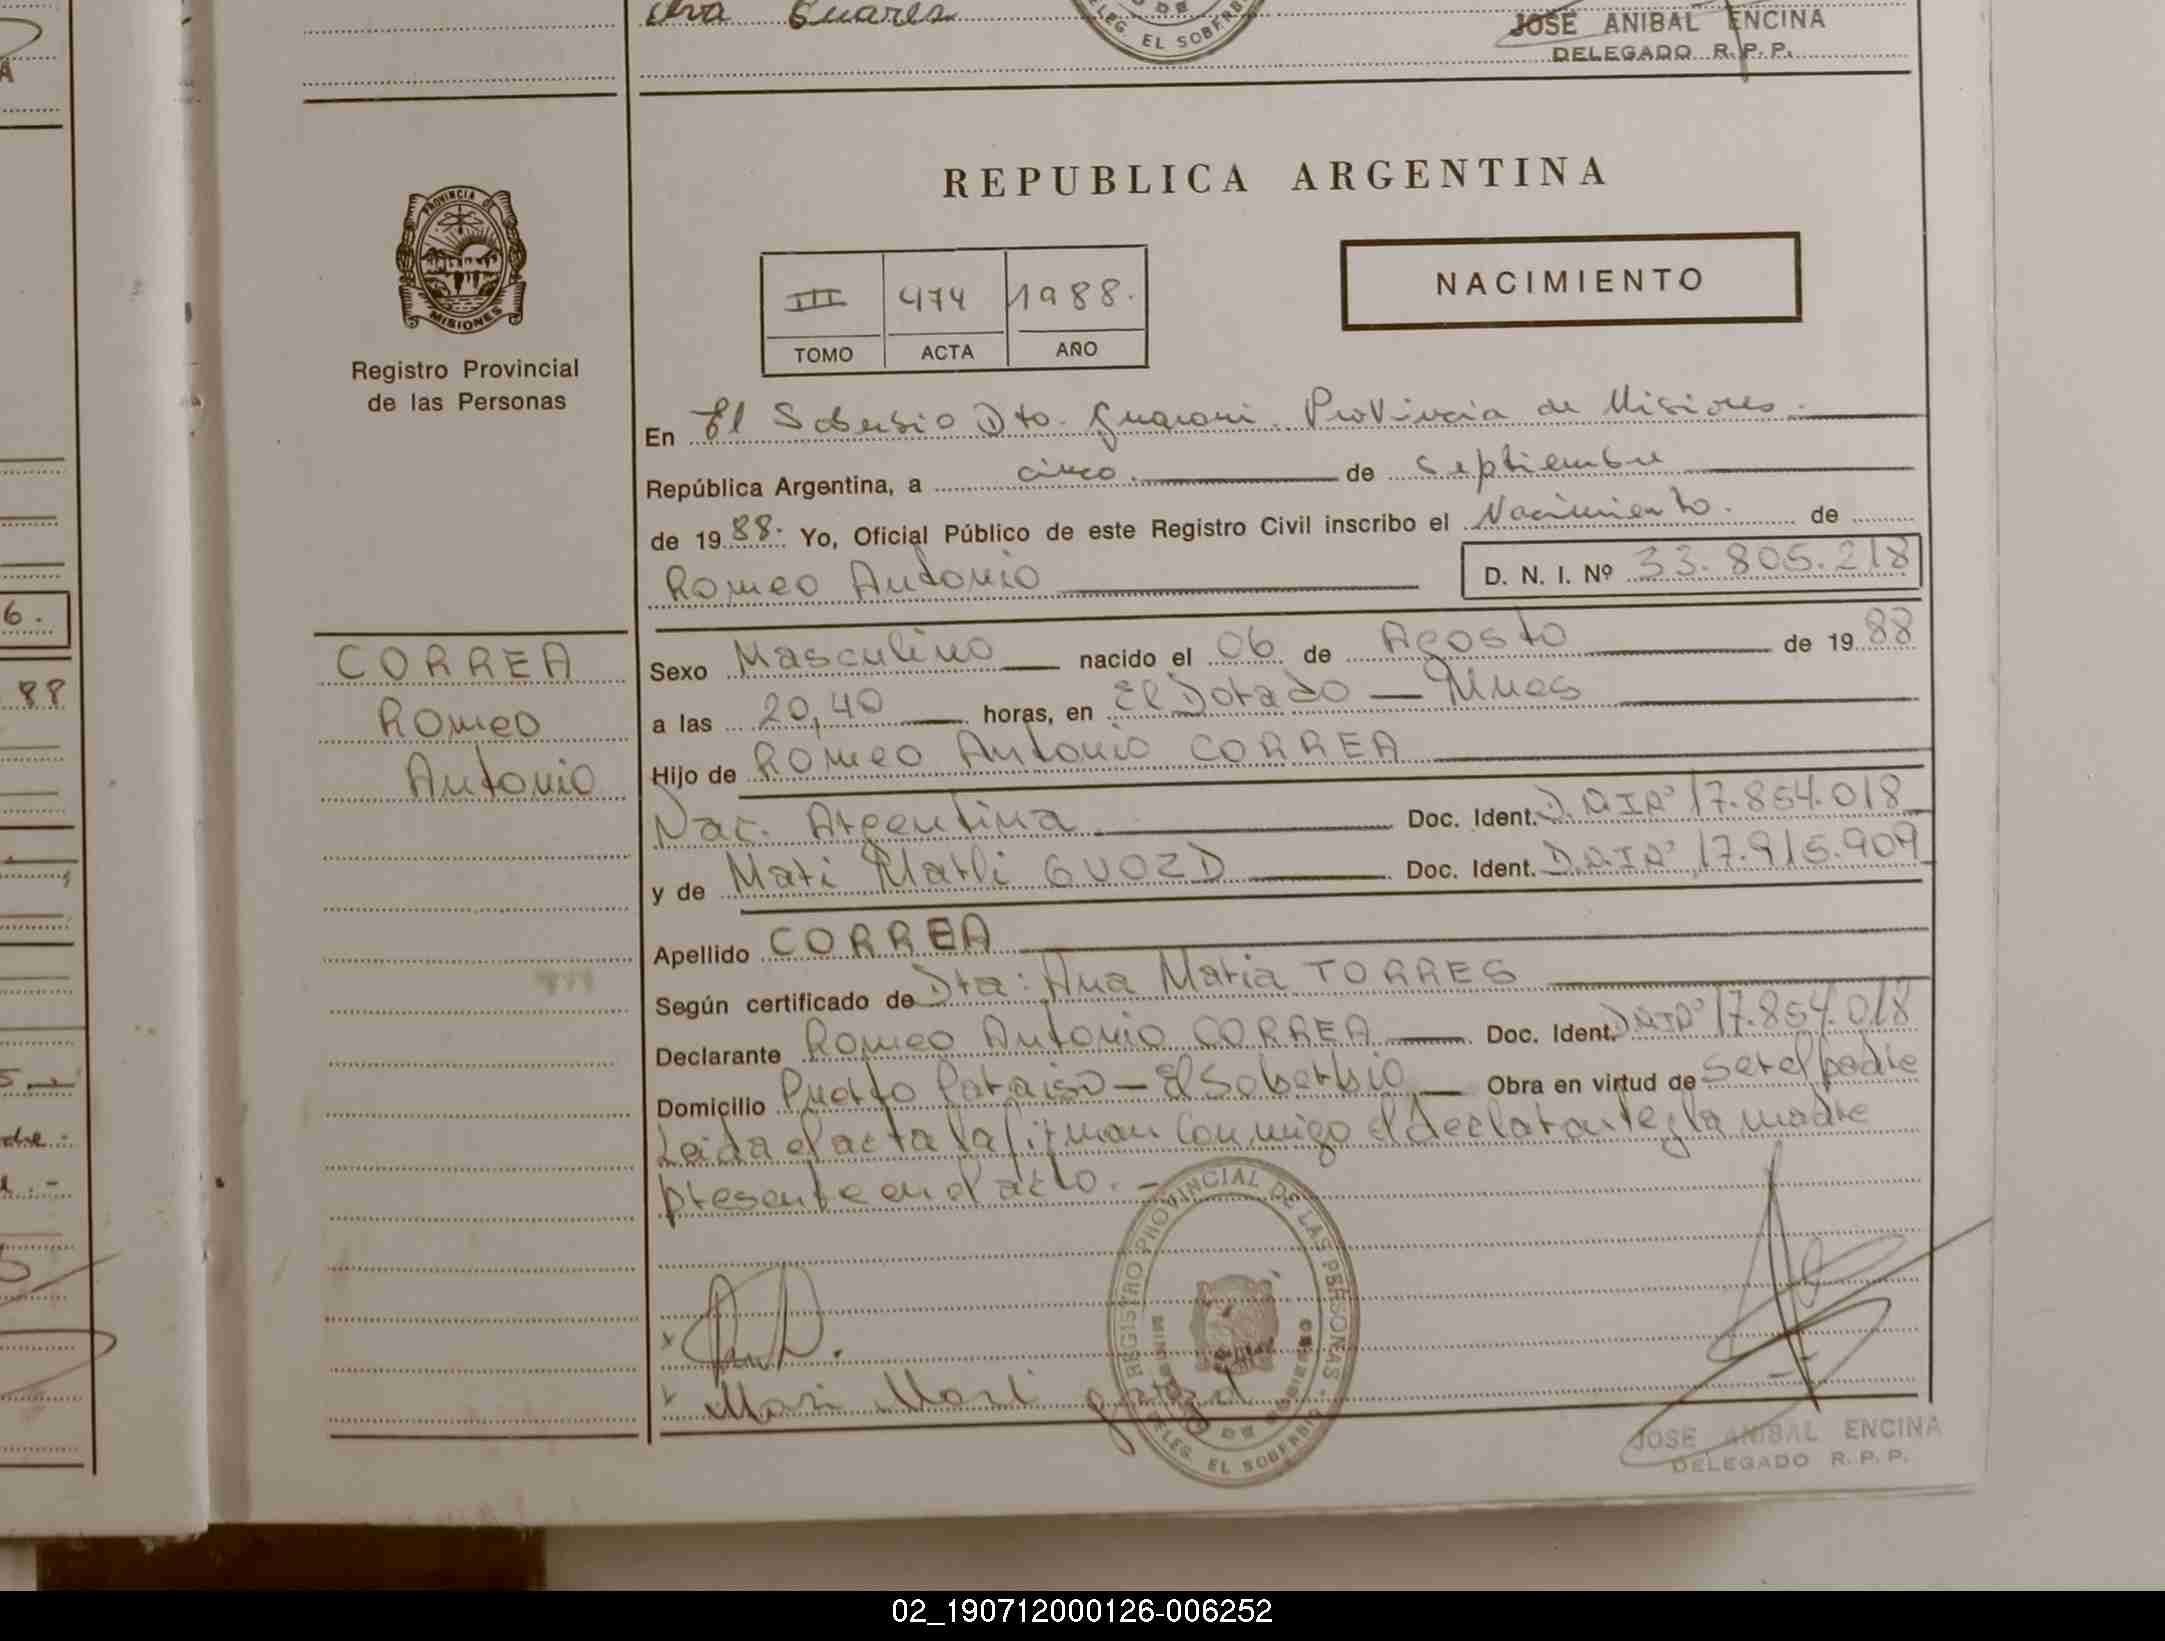 Elva Suares
DELEG. EL SOBERBIO
JOSE ANIBAL ENCINA
DELEGADO R. P. P.
REPUBLICA ARGENTINA
PROVINCIA DE
MISIONES
Registro Provincial
de las Personas
NACIMIENTO
III 474 1988.
TOMO ACTA AÑO
En El Soberbio Dto. Guarani. Provincia de Misiones.
República Argentina, a cinco. de septiembre
de 1988. Yo, Oficial Público de este Registro Civil inscribo el Nacimiento. de
Romeo Antonio D. N. I. Nº 33.805.218
CORREA
Romeo
Antonio
Sexo Masculino nacido el 06 de Agosto de 1988
a las 20,40 horas, en El Dorado — Mnes
Hijo de Romeo Antonio CORREA
Nac. Argentina Doc. Ident. D.N.I.Nº 17.854.018
y de Mari Marli GUOZD Doc. Ident. D.N.I.Nº 17.915.909
Apellido CORREA
Según certificado de Dra: Ana Maria TORRES
Declarante Romeo Antonio CORREA Doc. Ident. DNINº 17.854.018
Domicilio Puerto Paraiso — El Soberbio Obra en virtud de ser el padre
Leida el acta la firman conmigo el declarante y la madre
presente en el acto. -
REGISTRO PROVINCIAL DE LAS PERSONAS -
MINISTERIO DE GOBIERNO
DELEG. EL SOBERBIO
Mari Marli guozd
JOSE ANIBAL ENCINA
DELEGADO R. P. P.
02_190712000126-006252